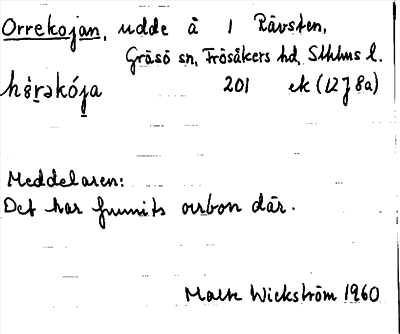 Orrekojan, udde å 1 Rävsten,
Gräsö sn, Frösåkers hd, Sthlms l.
201 ek (12J8a)
Meddelaren:
Det har funnits orrbon där.
Wickström 1960